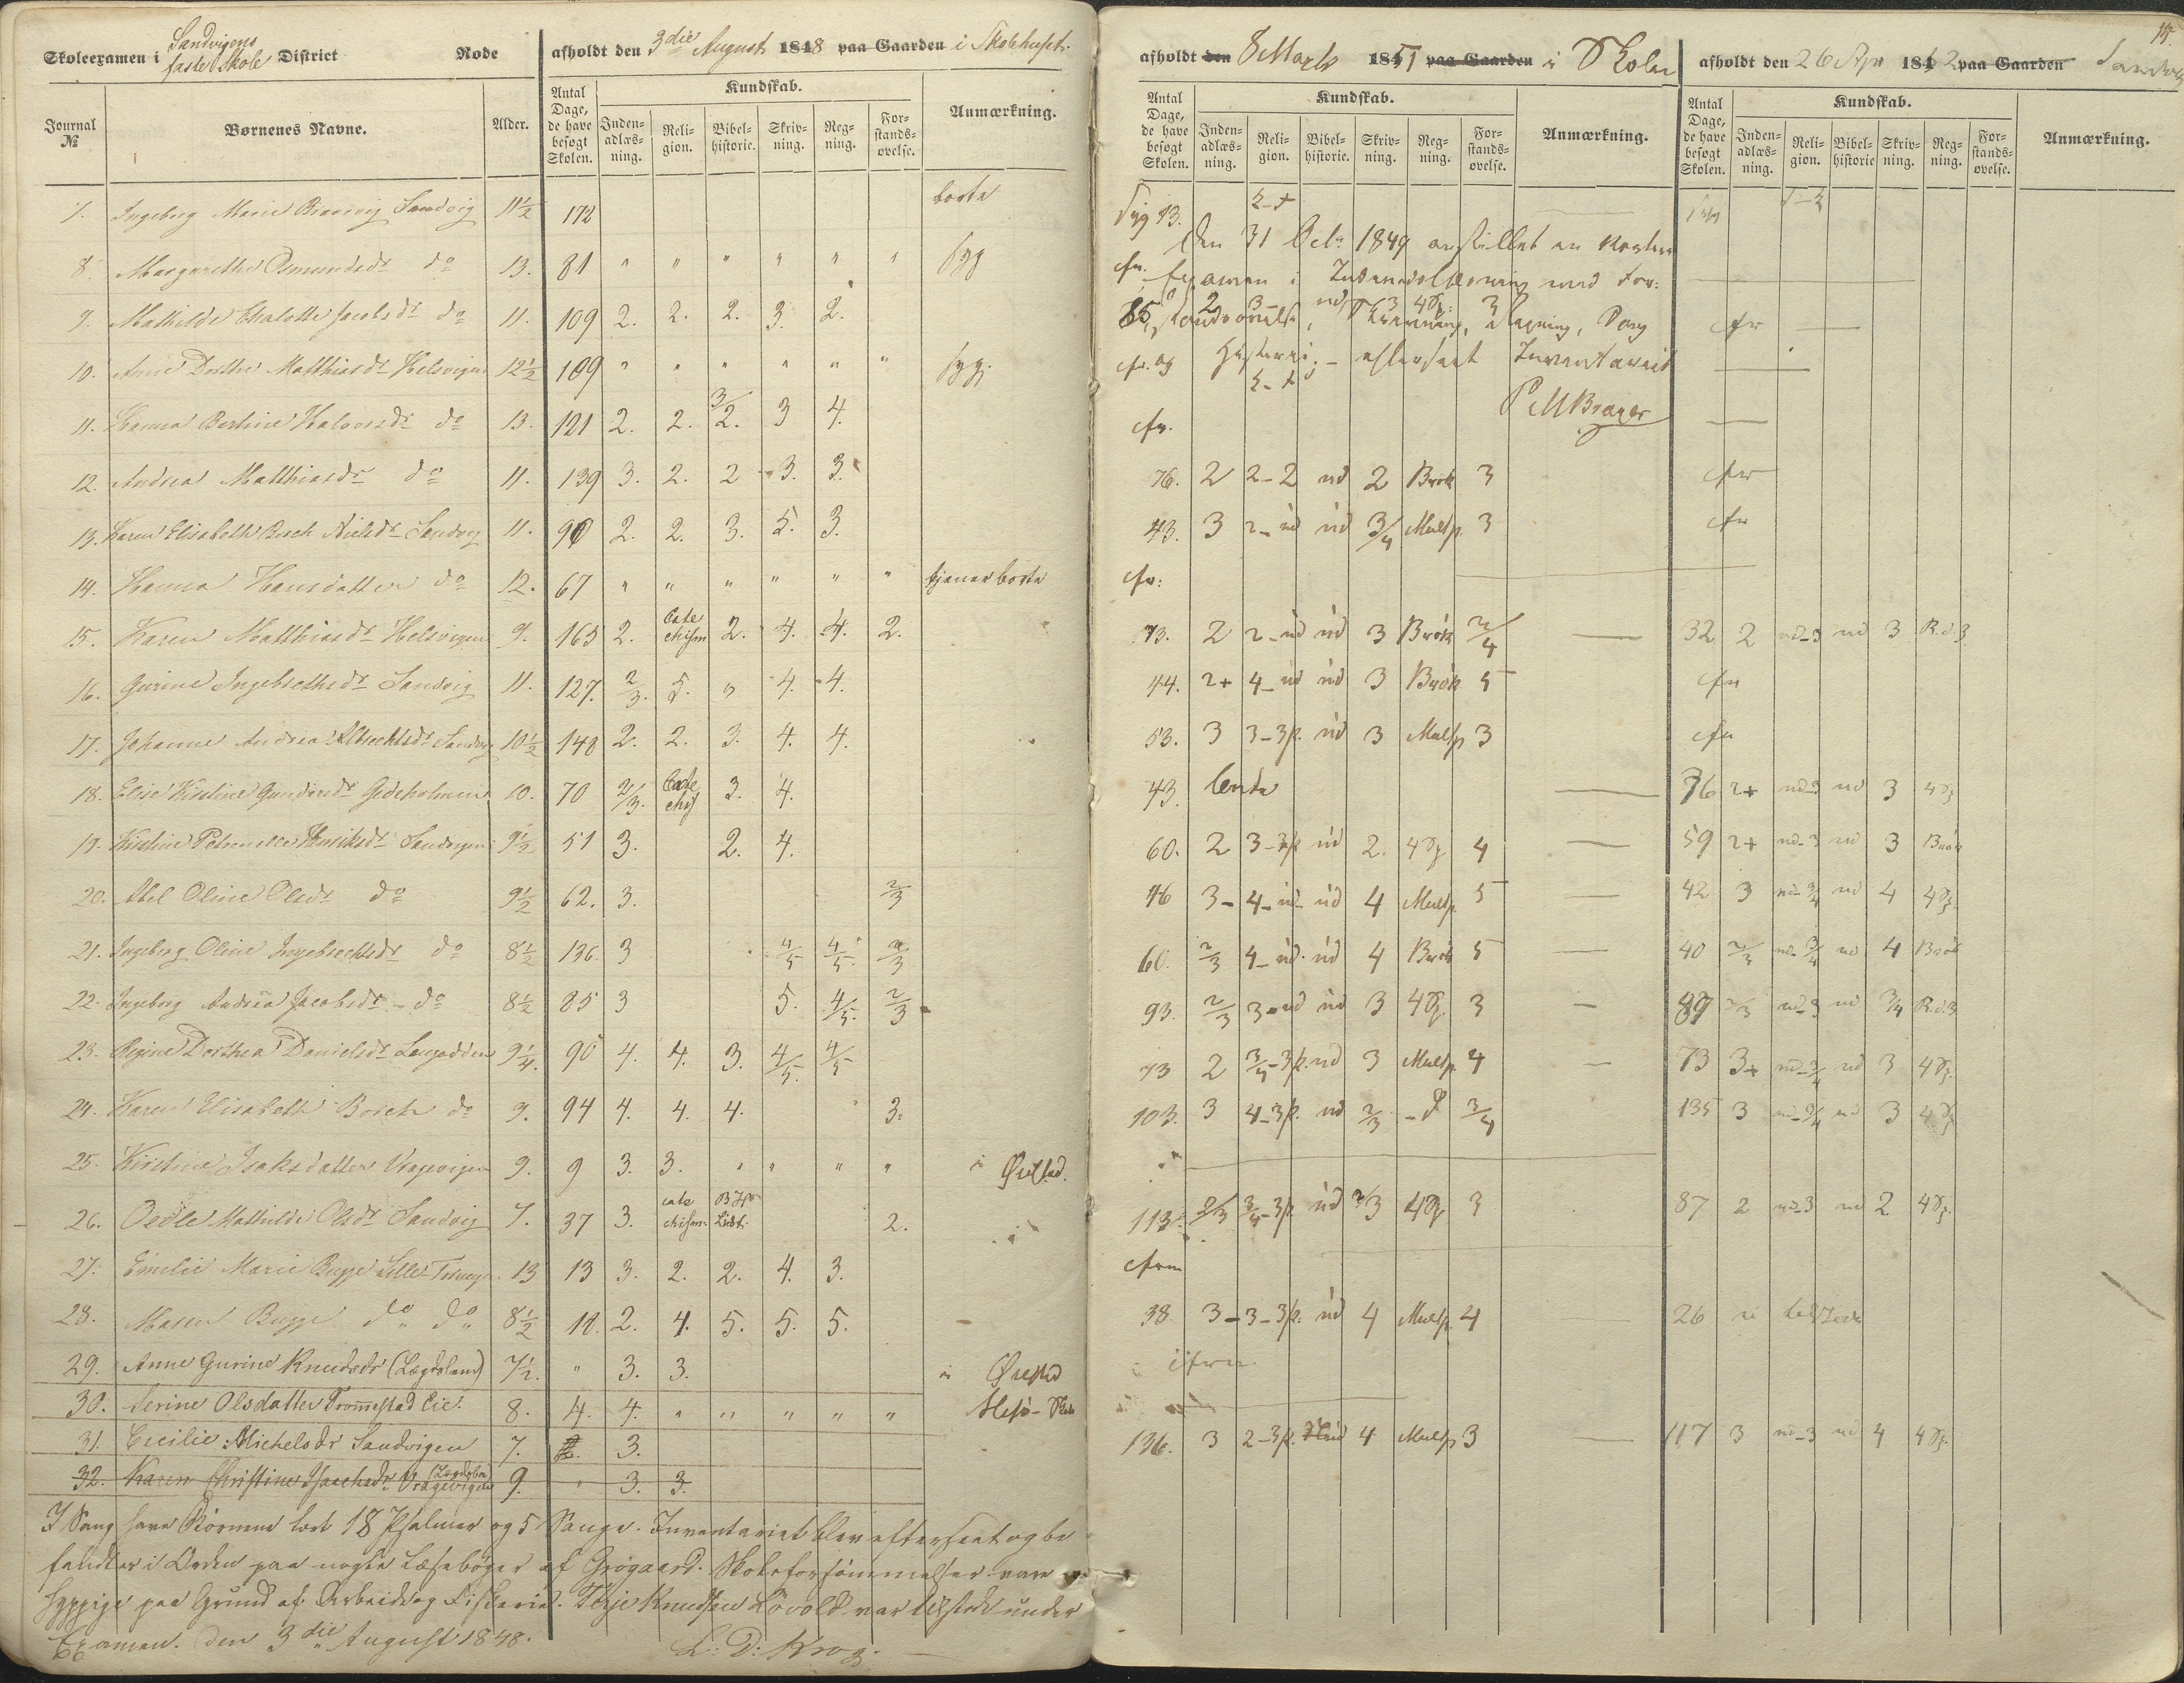 Skoleexamen i Sandvigens faste Skole District Rode afholdt den 3die August 1848 paa Gaarden i Skolehuset.
Journal № Børnenes Navne. Alder. Antal Dage, de have besøgt Skolen. Kundskab. Inden-adlæs-ning. Reli-gion. Bibel-historie. Skriv-ning. Reg-ning. For-stands-øvelse. Anmærkning.
7. Ingeborg Marie Sandvig 11½ 172 borte
8. Margarethe Osmundsdr do 13. 81 " " " " " " syg
9. Mathilde Chalotte Jacobsdr do 11. 109 2. 2. 2. 3. 2.
10. Anne Dorthe Matthiasdr Helsvigen 12½ 109 " " " " " " syg.
11. Hanna Bertine Halvorsdr do 13. 121 2. 2. 3/2. 3 4.
12. Andrea Matthiasdr do 11. 139 3. 2. 2 3. 3.
13. Karen Elisabeth Bosch Nielsdr Sandvig 11. 90 2. 2. 3. 5. 3.
14. Hanna Hansdatter do 12. 67 " " " " " " tjener borte
15. Karen Matthiasdr Helsvigen 9. 165 2. Catechism 2. 4. 4. 2.
16. Gurine Ingebrethsdr Sandvig 11. 127. 2/3. 5. " 4. 4.
17. Johanne Andrea Albrechtsdr Sandvig 10½ 148 2. 2. 3. 4. 4.
18. Elise Kirstine Gundersdr Gjeholmen 10. 70 2/3. Catechis 3. 4.
19. Kirstine Petronelle Henriksdr Sandvigen 9½ 51 3. 2. 4.
20. Abel Oline Olsdr do 9½ 62. 3. 2/3
21. Ingeborg Oline Ingebrechtsdr do 8½ 136. 3 4/5 4/5. 2/3
22. Ingeborg Andrea Jacobsdr do 8½ 85 3 5. 4/5. 2/3
23. Regine Dorthea Danielsdr Langodden 9¼. 90 4. 4. 3. 4/5. 4/5
24. Karen Elisabeth Bosch do 9. 94 4. 4. 4. 3.
25. Kirstine Isaksdatter Vragevigen 9. 9 3. 3. " " " " i Øiestad.
26. Oedle Mathilde Olsdr Sandvig 7. 37 3. catechism. 2.
27. Emilie Marie Bugge Lille 13 13 3. 2. 2. 4. 3.
28. Maren Bugge do do 8½ 18. 2. 4. 5. 5. 5.
29. Anne Gurine Knudsdr (Lægdslem) 7½. " 3. 3. i Øiestad
30. Serine Olsdatter Tromestad Eie. 8. 4. 4. " " " " " Hisø-Skole
31. Cecilie Michelsdr Sandvigen 7. 3.
32. Karen Christine Isaachsdr Vragevigen 9. " 3. 3.
I Sang have Børnene lært 18 Psalmer og 5 Sange. Inventariet blev efterseet og be
fandtes i Orden paa nogle Læsebøger af Grøgaard. Skoleforsømmelser vare
hyppige paa Grund af Arbeide og Fiskeri. Terje Knudsen Lovold var tilstede under
Examen. Den 3die August 1848.
L: D: Krog.
afholdt den 8 Marts 1851 paa Gaarden i Skolen
Antal Dage, de have besøgt Skolen. Kundskab. Inden-adlæs-ning. Reli-gion. Bibel-historie. Skriv-ning. Reg-ning. For-stands-øvelse. Anmærkning.
Den 31 Octr 1849 anstillet en
Examen i Indenadslæsning med For:
standsøvelse, Skrivning, Regning, Sang
og Historie; - efterseet Inventariet
P M Brager
cfr.
76. 2 2-2 ud 2 Brøk 3
43. 3 2-ud ud 3/4 Mulp. 3
cfr:
73. 2 2-ud ud 3 Brøk 2/4
44. 2+ 4-ud ud 3 Brøk 5
53. 3 3-3p. ud 3 Mulp 3
43. borte
60. 2 3-3p ud 2. 4Sp 4
46 3- 4-ud ud 4 Mulp. 5
60. 2/3 4-ud. ud 4 Brøk 5
93. 2/3 3-ud ud 3 4Sp. 3
73 2 3/4-3p. ud 3 Mulp. 4
103. 3 4-3p. ud 2/3 3/4
113. 2/3 3/4-3p ud 2/3 4Sp 3
cfrm
38. 3- 3-3p. ud 4 Mulp. 4
136. 3 2-3p. ud 4 Mulp 3
afholdt den 26 Apr 1852 paa Gaarden Sandvig
Antal Dage, de have besøgt Skolen. Kundskab. Inden-adlæs-ning. Reli-gion. Bibel-historie Skriv-ning. Reg-ning. For-stands-øvelse. Anmærkning.
cfr
cfr
cfr
32 2 ud-3 ud 3 R.d.3
cfr
cfr
76 2+ ud-3 ud 3 4Sp
59 2+ ud-3 ud 3 Brøk
42 3 ud-3/4 ud 4 4Sp.
40 2/3 ud-3/4 ud 4 Brøk
89 2/3 ud-3 ud 3/4 R.d.3
73 3+ ud-3/4 ud 3 4Sp.
135 3 ud-3/4 ud 3 4Sp
87 2 ud-3 ud 2 4Sp.
26 ei tilstede
117 3 ud-3 ud 4 4Sp.